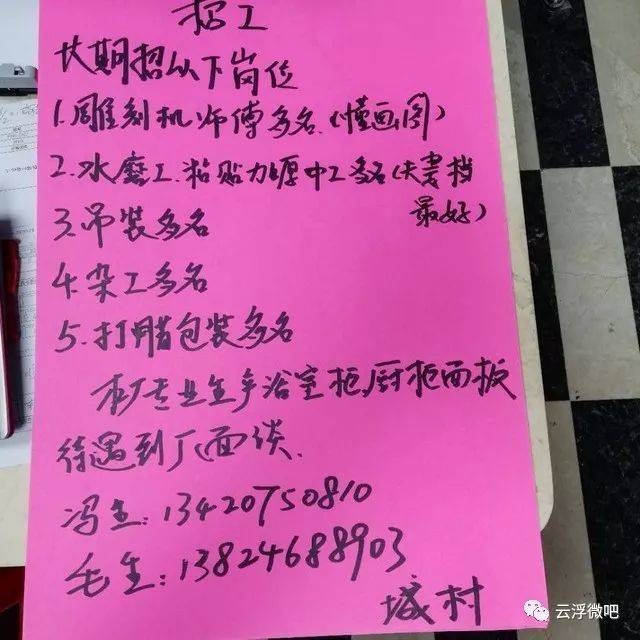 招工
长期招以下岗位
1.雕刻机师傅多名(懂画图)
2.水磨工.粘贴加厚中工多名(夫妻档
最好)
3.吊装多名
4.杂工多名
5.打腊包装多名
本厂专业生产浴室柜,厨柜面板
待遇到厂面谈.
冯生:13420750810
毛生:13824688903
城村
云浮微吧